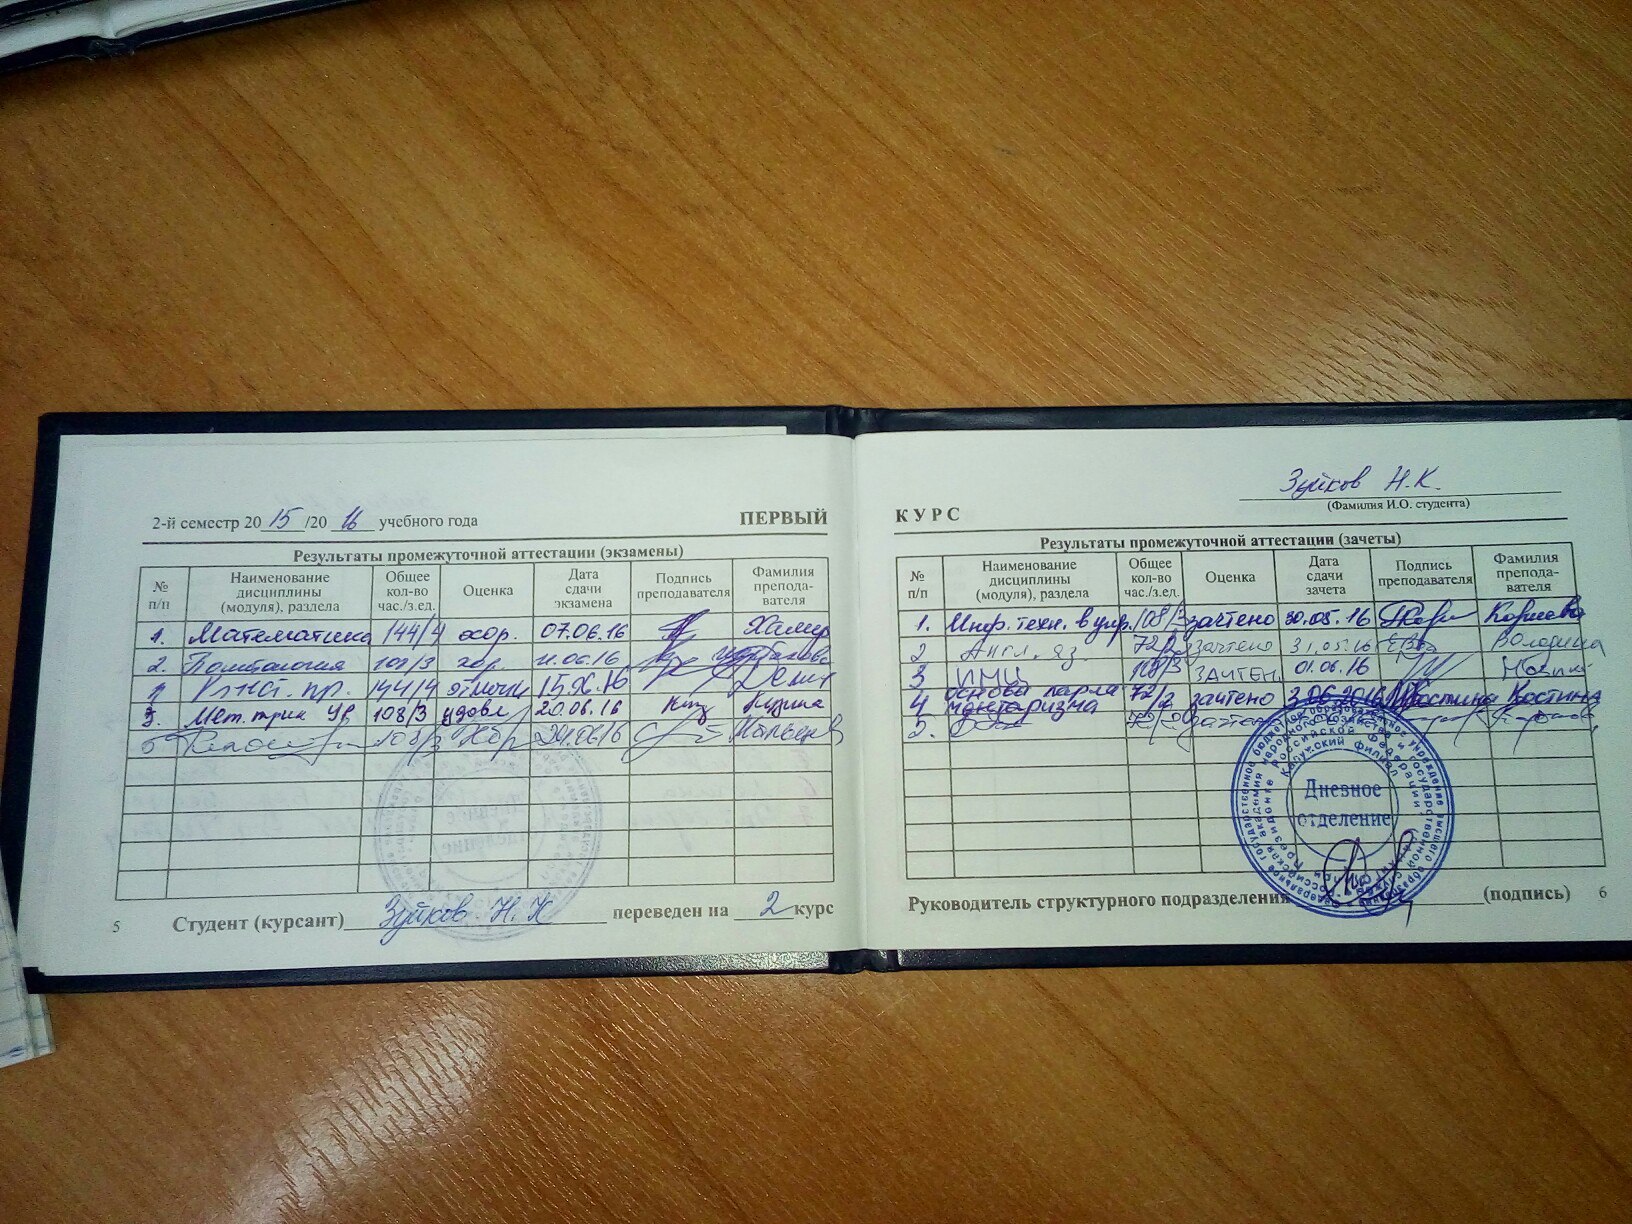 2-й семестр 20 15 /20 16 учебного года
ПЕРВЫЙ
Результаты промежуточной аттестации (экзамены)
№ п/п Наименование дисциплины (модуля), раздела Общее кол-во час./з.ед. Оценка Дата сдачи экзамена Подпись преподавателя Фамилия препода-вателя
1. Математика 144/4 хор. 07.06.16
2. Политология 108/3 хор. 11.06.16
Конст. пр. 144/4 отлично 15.06.16
Мет. прин. УР 108/3 удовл 20.06.16
5 108/3 Хор 24.06.16
5 Студент (курсант) Зуйков Н.К переведен на 2 курс
Зуйков Н.К.
(Фамилия И.О. студента)
КУРС
Результаты промежуточной аттестации (зачеты)
№ п/п Наименование дисциплины (модуля), раздела Общее кол-во час./з.ед. Оценка Дата сдачи зачета Подпись преподавателя Фамилия препода-вателя
1. Инф. техн. в упр. 108/3 зачтено 30.05.16
2 Англ. яз. 72/2 зачтено 31.05.16 Володина
3 ИМЦ 108/3 ЗАЧТЕН 01.06.16
4 основы парла ментаризма 72/2 зачтено Костина Костина
5. 72/2
Дневное
отделение
Руководитель структурного подразделения (подпись) 6